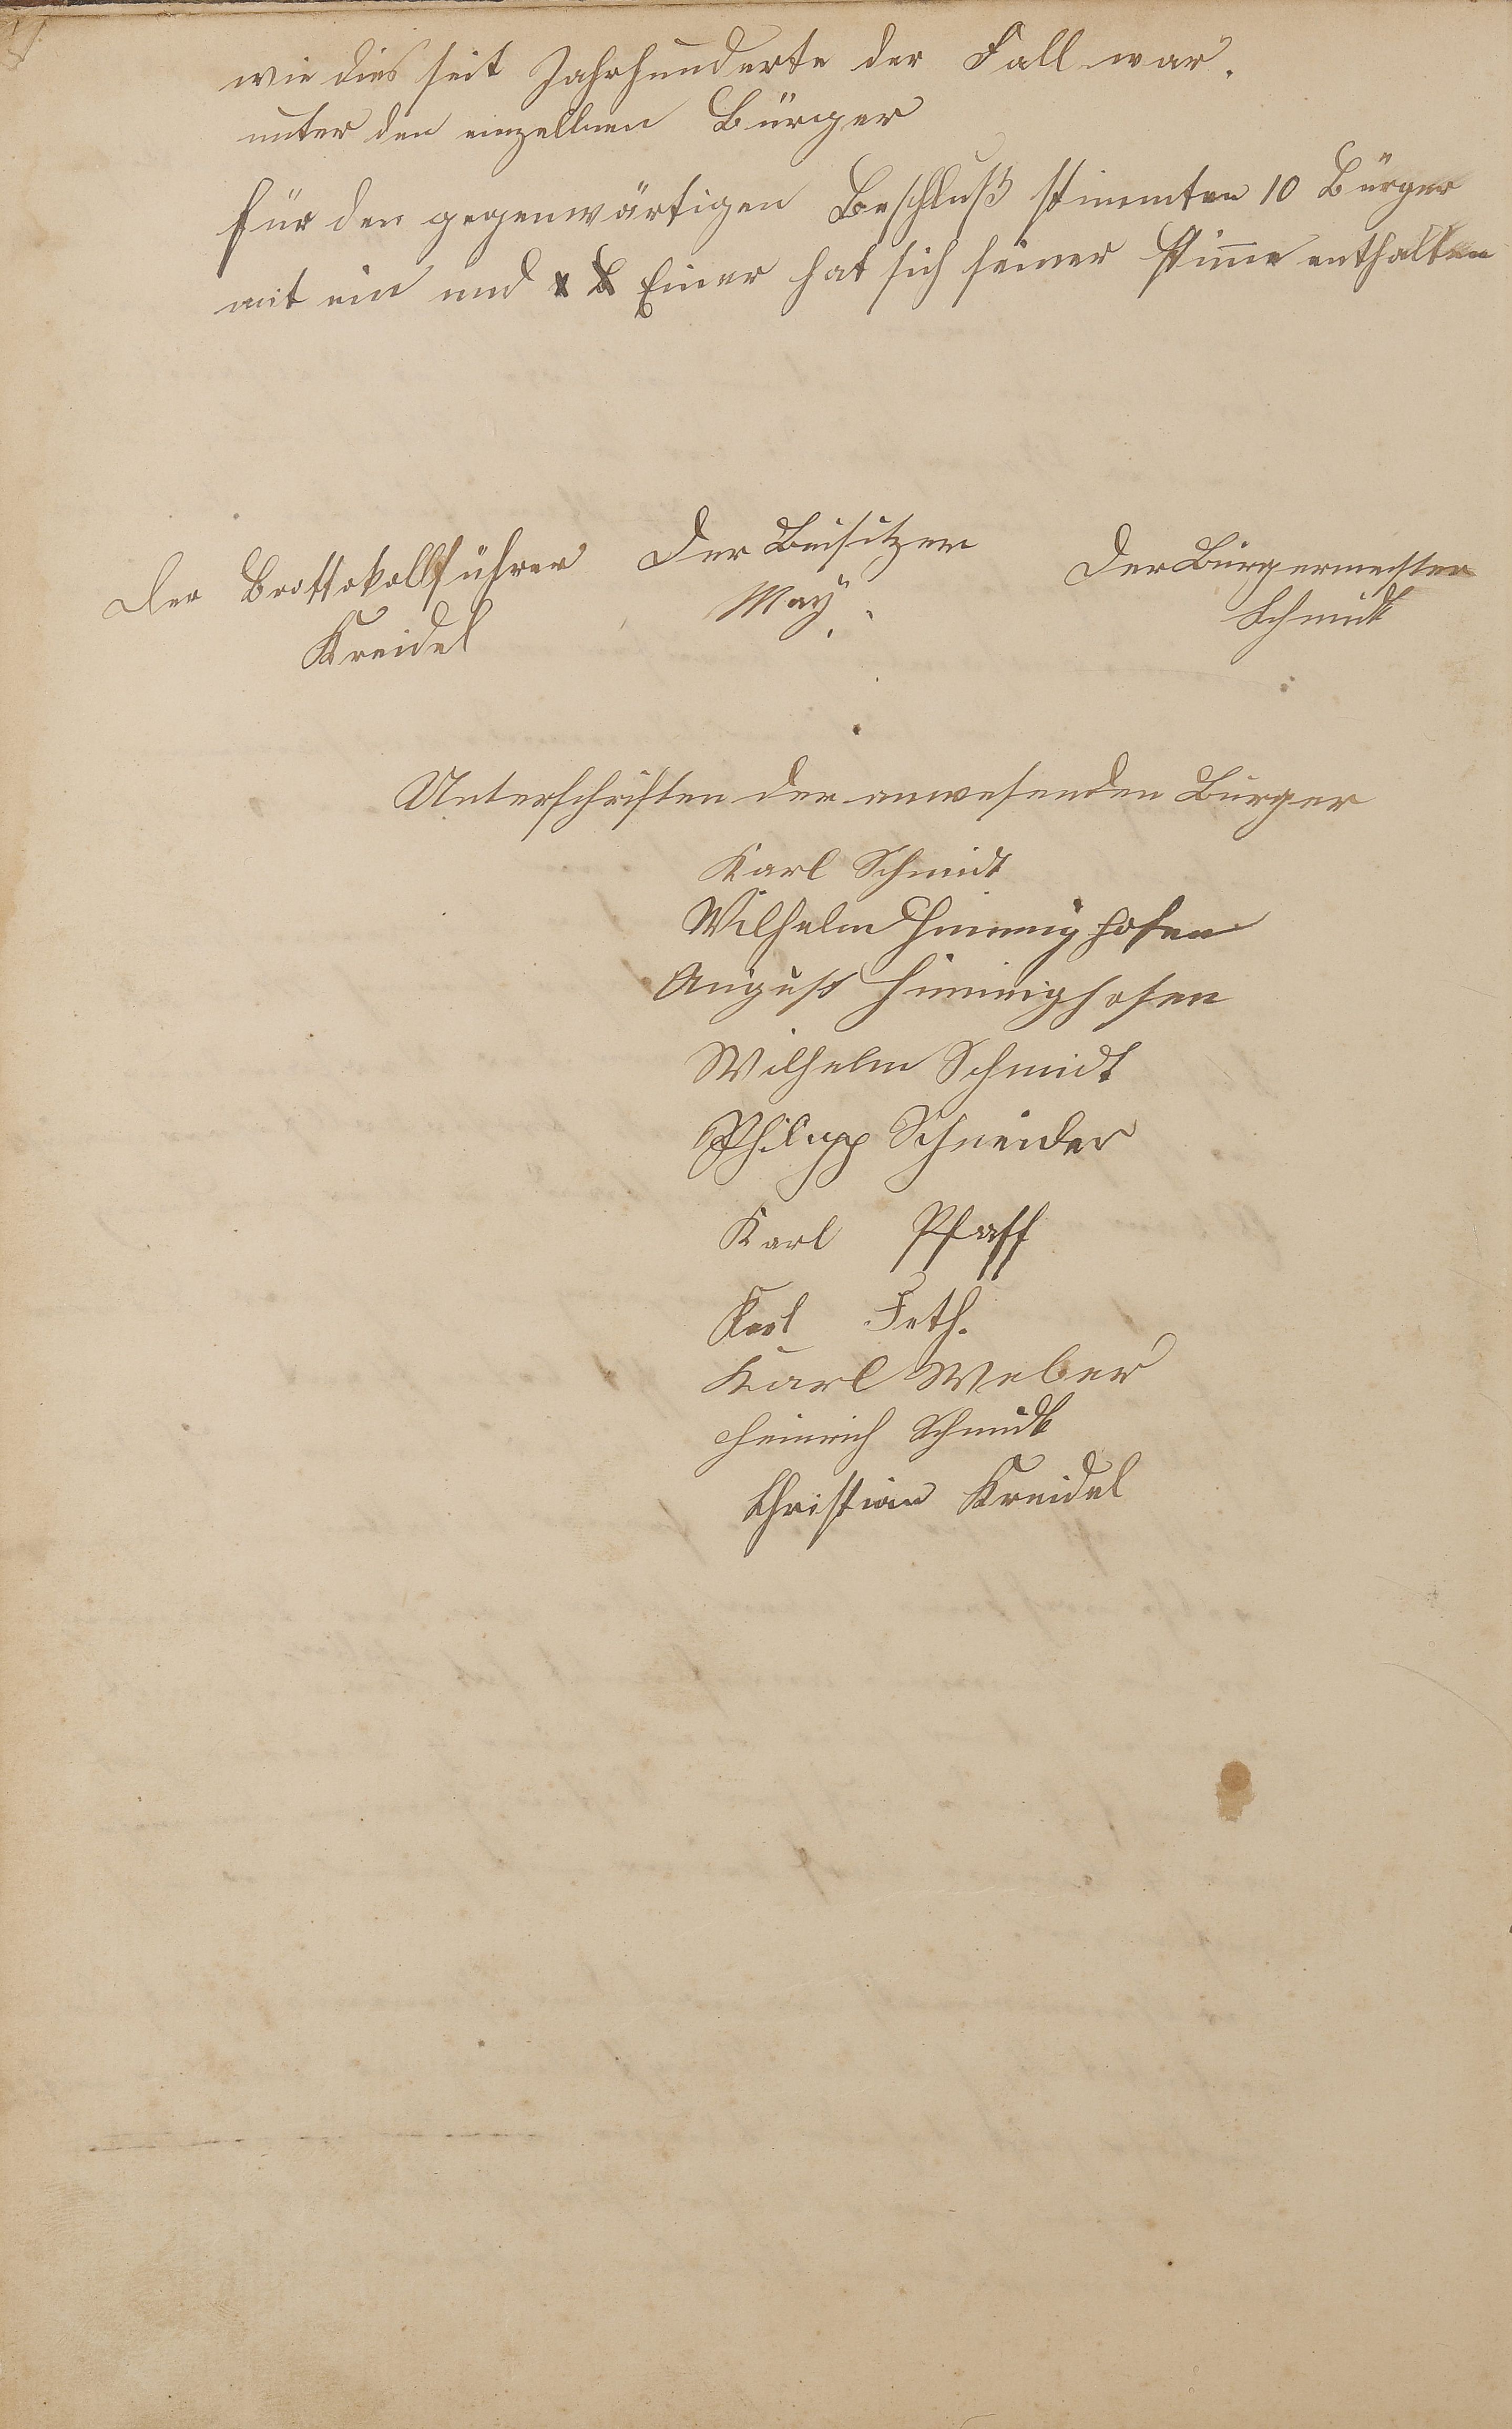 wie dies seit Jahrhunderte der Fall war.
unter den einzellnen Bürger
für den gegenwärtigen Beschluß stimmten 10 Bürger
mit ein und Einer hat sich seiner Stimme enthalten
Der Brottokollführer
Kreidel
Der Beisitzer
Maÿ
Der Bürgermeister
Schmidt
Unterschriften der anwesenden Bürger
Karl Schmidt
Wilhelm Himmighofen
August Himmighofen
Wilhelm Schmidt
Philipp Schneider
Karl Pfaff
Karl Feth.
Karl Weber
Heinrich Schmidt
Christian Kreidel